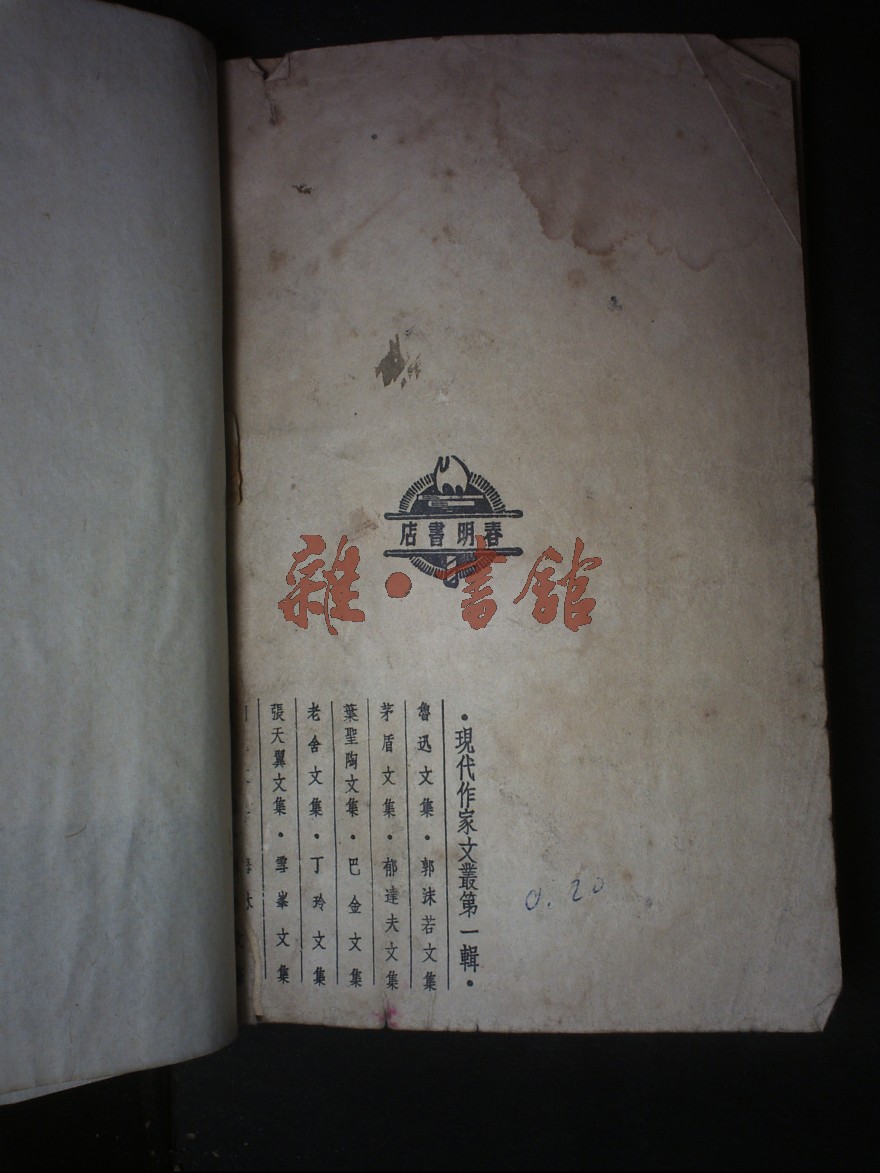 春明書店
雜·書館
·現代作家文叢第一輯·
魯迅文集·郭沫若文集
茅盾文集·郁達夫文集
葉聖陶文集·巴金文集
老舍文集·丁玲文集
張天翼文集·雪峯文集
0.20